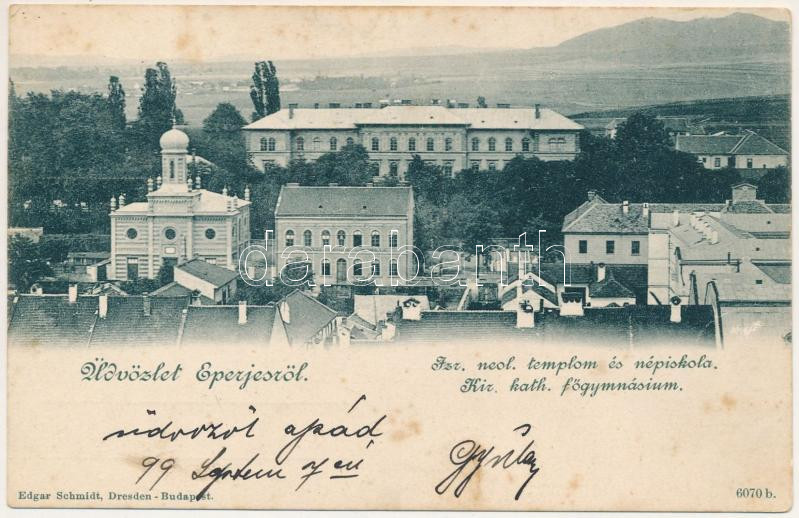 darabanth
Üdvözlet Eperjesröl.
Izr. neol. templom és népiskola.
Kir. kath. főgymnásium.
üdvözöl apád
99 Septem 7 én
Gyula
Edgar Schmidt, Dresden - Budapest.
6070 b.